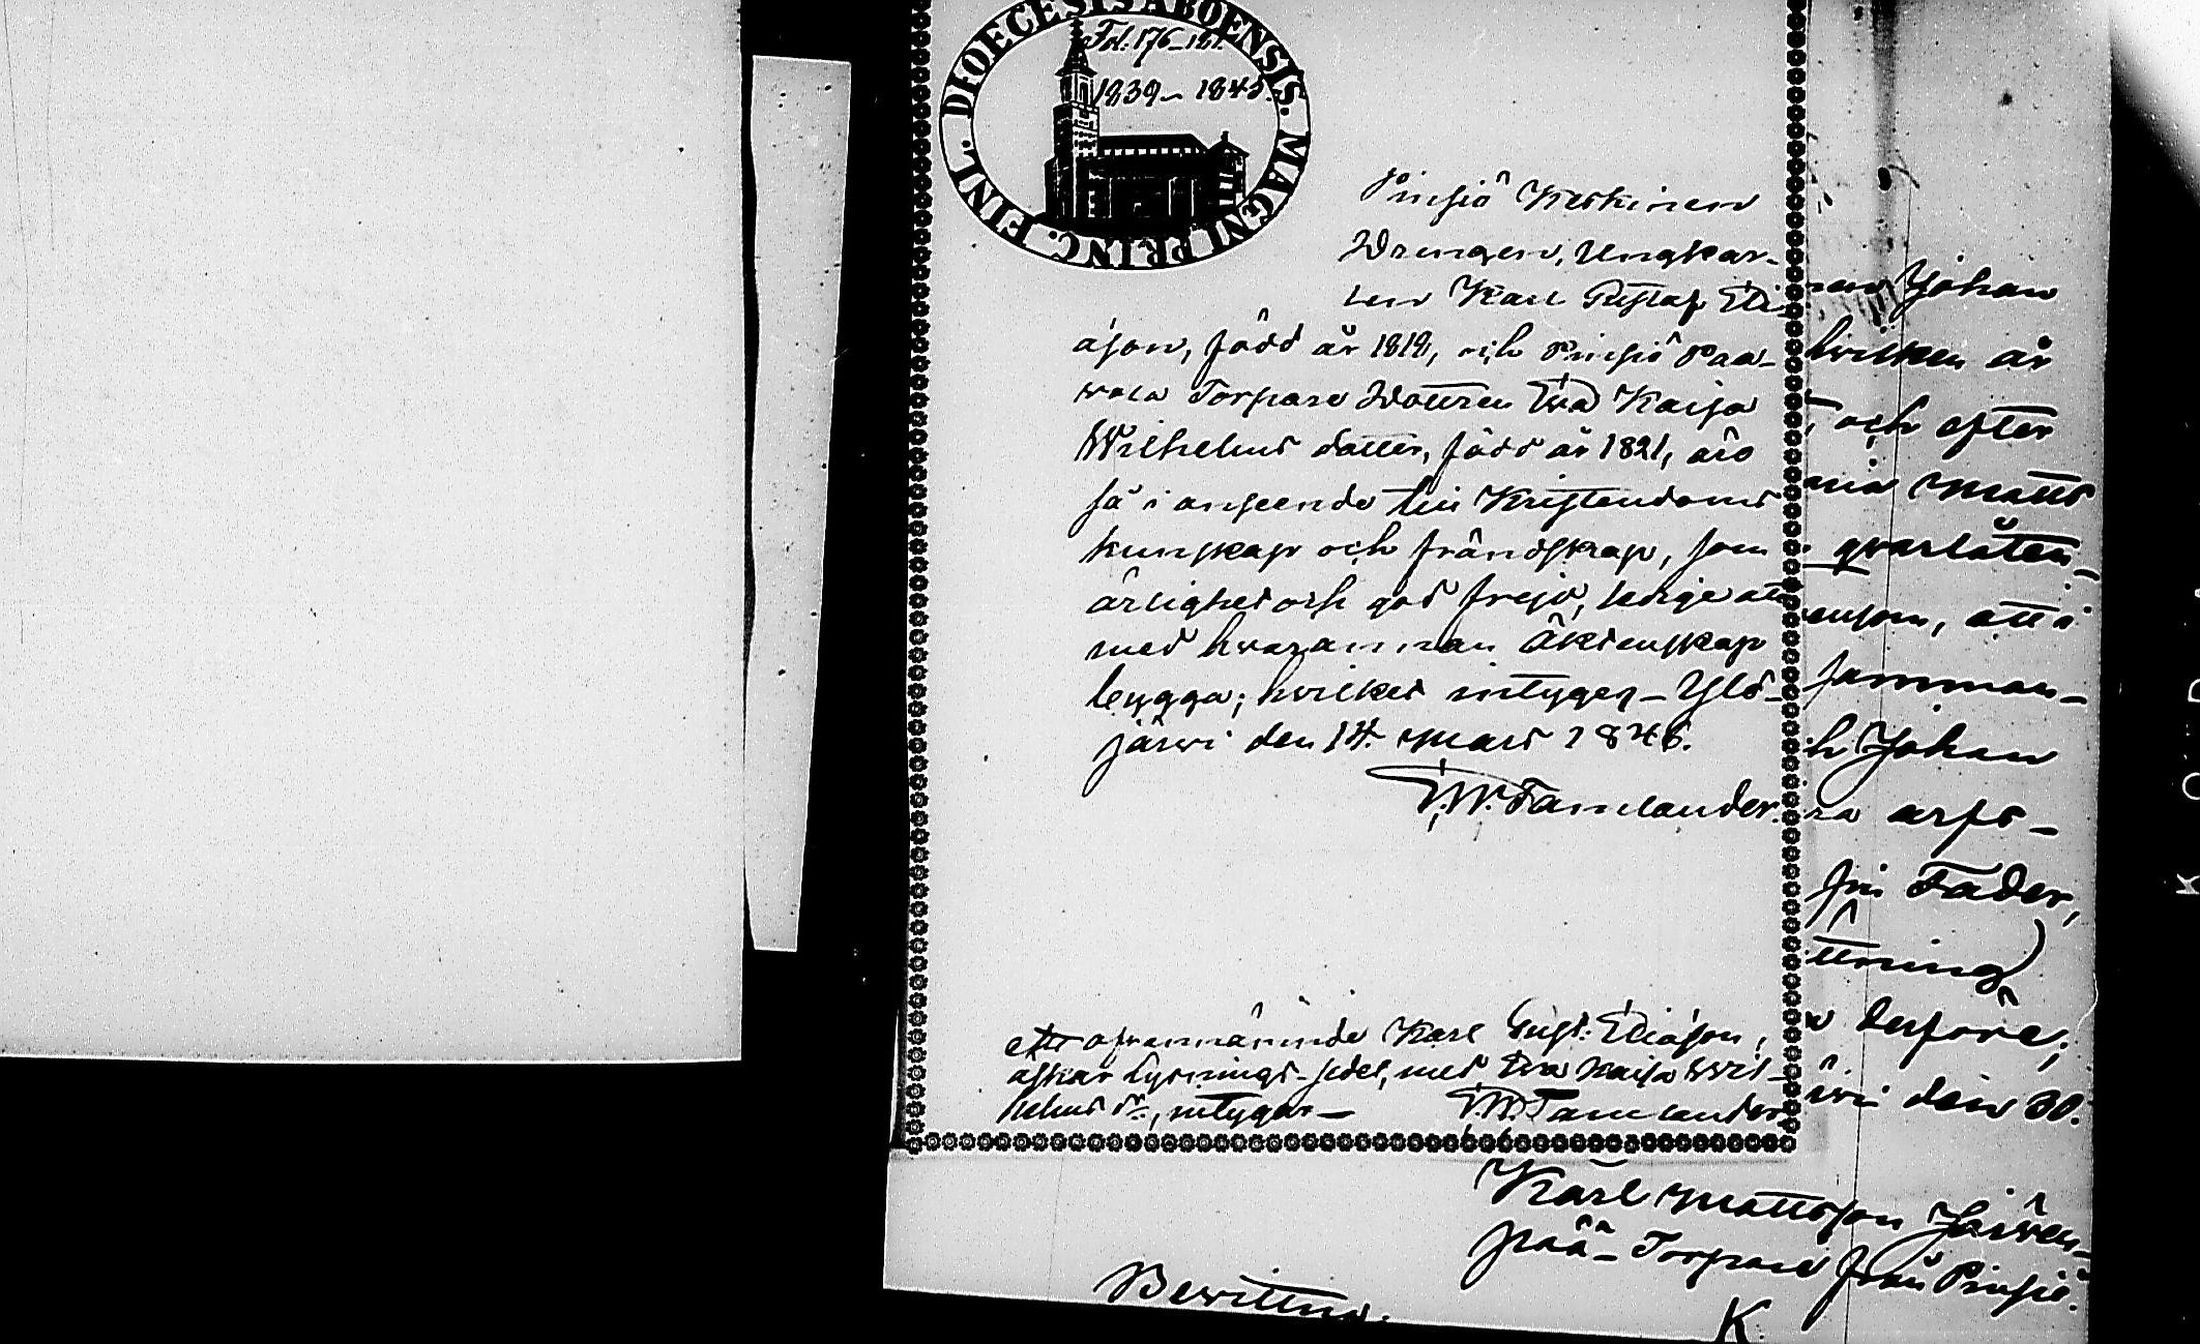 DIOECESIS ABOENSIS. MAGNI PRINC. FINL.
Fol. 176-181.
1839- 1845.
Pinsiö Keskinen
Drengen, Ungkar-
len Karl Gustaf Eli-
ason, född år 1819, och Pinsiö Paa-
vola Torpare Dottren Eva Kaisa
Wilhelms dotter, född år 1821, äro
så i anseende till Kristendoms
kunskap och frändskap, som
ärlighet och god frejd, ledige att
med hvarannan Äktenskap
bygga; hvilket intygen_ Ylö-
järvi den 14. Mars 1846.
F.W. Tamlander.
Att ofvannämnde Karl Gust. Eliason,
uttag Lysnings-sedel, med Eva Kaisa Wil-
helms dr, intygar_
F.W. Tamlander
Johan
hvilken är
och efter
Matts
qvarlåten-
ensom, att i
samman-
h Johan
ra arfs-
sin Fader,
ttning
derföre;
rvi den 30.
Karl Mattsson Järven-
pää- Torpare från Pinsiö.
Bevittna.
K.